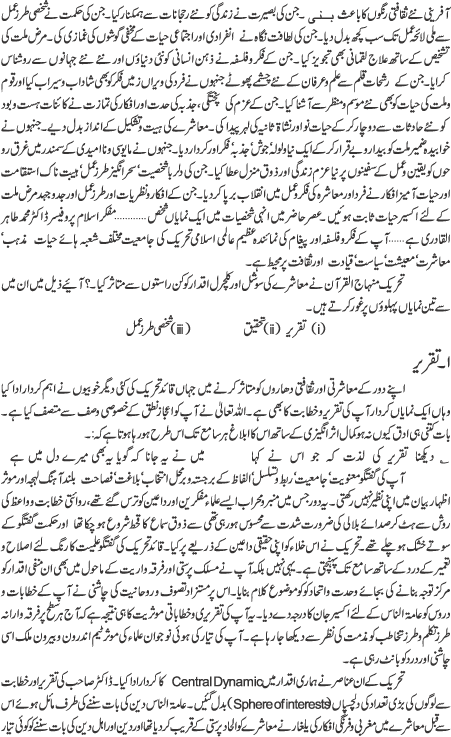 آفرینی نئے ثقافتی رنگوں کا باعث بنی۔ جن کی بصیرت نے زندگی کو نئے رجحانات سے ہمکنار کیا۔ جن کی حکمت نے شخصی طرز عمل
سے ملی لائحہ عمل تک سب کچھ بدل دیا۔ جن کی لطافت نگاہ نے انفرادی اور اجتماعی حیات کے مخفی گوشوں کی غمازی کی۔ مرض ملت کی
تشخیص کے ساتھ علاج لقمانی بھی تجویز کیا۔ جن کے فکر و فلسفہ نے ذہن انسانی کو نئی دنیاؤں اور نئے نئے جہانوں سے روشناس
کرایا۔ جن کے رشحات قلم سے علم و عرفان کے نئے چشمے پھوٹے جنہوں نے فرد کی ویراں زمین فکر کو بھی شاداب و سیراب کیا اور قوم
وملت کی حیات کو بھی نئے موسم و منظر سے آشنا کیا۔ جن کے عزم کی پختگی، جذبہ کی حدت اور افکار کی تمازت نے کائنات ہست و بود
کو نئے حادثات سے دوچار کر کے حیات نو اور نشاۃ ثانیہ کی لہر پیدا کی۔ معاشرے کی ہیت و تشکیل کے انداز بدل دیے۔ جنہوں نے
خوابیدہ ضمیر ملت کو بیدار و بے قرار کر کے ایک نیا ولولہ، جوش، جذبہ، فکر اور کردار دیا۔ جنہوں نے مایوسی و ناامیدی کے سمندر میں غرق رو
حوں کو یقین و عمل کے سفینوں پر نیا عزم زندگی اور ذوق منزل عطا کیا۔ جن کی دلربا شخصیت، سحر انگیز طرز عمل، ہیبت ناک استقامت
اور حیات آمیز افکار نے فرد اور معاشرہ کی فکر و عمل میں انقلاب برپا کر دیا۔ جن کے افکار و نظریات اور طرز عمل اور جدوجہد مرض ملت
کے لئے اکسیر حیات ثابت ہوئیں۔ عصر حاضر میں انہی شخصیات میں ایک نمایاں شخص ............ مفکر اسلام پروفیسر ڈاکٹر محمد طاہر
القادری ہے...... آپ کے فکر و فلسفہ اور پیغام کی نمائندہ عظیم عالمی اسلامی تحریک کی جامعیت مختلف شعبہ ہائے حیات مذہب،
معاشرت، معیشت، سیاست، قیادت اور ثقافت پر محیط ہے۔
تحریک منہاج القرآن نے معاشرے کی سوشل اور کلچرل اقدار کو کن راستوں سے متاثر کیا۔؟ آئیے ذیل میں ان میں
سے تین نمایاں پہلوؤں پر غور کرتے ہیں۔
(i) تقریر (ii) تحقیق (iii) شخصی طرز عمل
ا۔ تقریر
اپنے دور کے معاشرتی اور ثقافتی دھاروں کو متاثر کرنے میں جہاں قائد تحریک کی کئی دیگر خوبیوں نے اہم کردار ادا کیا
وہاں ایک نمایاں کردار آپ کی تقریر و خطابت کا بھی ہے۔ اللہ تعالیٰ نے آپ کو اعجاز نطق کے خصوصی وصف سے متصف کیا ہے۔
بات کتنی ہی ادق کیوں نہ ہو کمال اثر انگیزی کے ساتھ اس کا ابلاغ ہر سامع تک اس طرح ہو رہا ہوتا ہے کہ:
دیکھنا تقریر کی لذت کہ جو اس نے کہا میں نے یہ جانا کہ گویا یہ بھی میرے دل میں ہے
آپ کی گفتگو معنویت، جامعیت، ربط و تسلسل، الفاظ کے برجستہ و برمحل انتخاب، بلاغت، فصاحت، بلند آہنگ لہجہ اور موثر
اظہار بیان میں اپنی نظیر نہیں رکھتی۔ یہ دور جس میں منبر و محراب ایسے علماء مفکرین اور داعین کو ترس گئے تھے، روایتی خطابت و واعظ کی
روش سے ہٹ کر صدائے بلالی کی ضرورت شدت سے محسوس ہو رہی تھی۔ ذوق سماع کا قحط شروع ہو چکا تھا اور حکمت گفتگو کے
سوتے خشک ہو چلے تھے۔ تحریک نے اس خلاء کو اپنی حقیقی داعین کے ذریعے پر کیا۔ قائد تحریک کی گفتگو علمیت کا رنگ لئے اصلاح و
تعمیر کے درد کے ساتھ سامع تک پہنچتی ہے۔ یہی نہیں بلکہ آپ نے مسلک پرستی اور فرقہ واریت کے ماحول میں بھی ان منفی اقدار کو
مرکز توجہ بنانے کی بجائے وحدت و اتحاد کو موضوع کلام بنایا۔ اس پر مستزاد تصوف و روحانیت کی چاشنی نے آپ کے خطابات و
دروس کو عامۃ الناس کے لئے اکسیر جان کا درجہ دے دیا۔ یہ آپ کی تقریری و خطاباتی موثریت کا ہی نتیجہ ہے کہ آج ہر سطح پر فرقہ وارانہ
طرز تکلم و طرز تخاطب کو مذمت کی نظر سے دیکھا جا رہا ہے۔ آپ کی تیار کی ہوئی نوجوان علماء کی موثر ٹیم اندرون و بیرون ملک اسی
چاشنی اور درد کو بانٹ رہی ہے۔
تحریک کے ان عناصر نے ہماری اقدار میں Central Dynamic کا کردار ادا کیا۔ ڈاکٹر صاحب کی تقریر اور خطابت
سے لوگوں کی بڑی تعداد کی دلچسپیاں (Sphere of interests) بدل گئیں۔ عامۃ الناس دین کی بات سننے کی طرف مائل ہوئے اس
سے قبل معاشرے میں مغربی و فرنگی افکار کی یلغار نے معاشرے کو الحاد پرستی کے قریب کر دیا تھا اور دین اور اہل دین کی بات سننے کو کوئی تیار